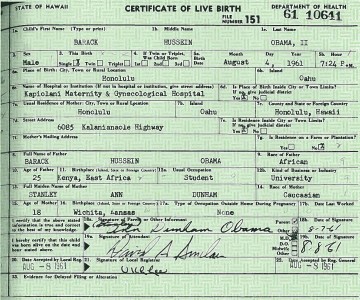 STATE OF HAWAII CERTIFICATE OF LIVE BIRTH DEPARTMENT OF HEALTH
FILE NUMBER 151 61 10641
1a. Child's First Name (Type or print) 1b. Middle Name 1c. Last Name
BARACK HUSSEIN OBAMA, II
2. Sex 3. This Birth 4. If Twin or Triplet, Was Child Born 5a. Birth Date Month Day Year 5b. Hour
Male Single X Twin Triplet 1st 2nd 3rd August 4, 1961 7:24 P.M.
6a. Place of Birth: City, Town or Rural Location 6b. Island
Honolulu Oahu
6c. Name of Hospital or Institution (If not in hospital or institution, give street address) 6d. Is Place of Birth Inside City or Town Limits? If no, give judicial district
Kapiolani Maternity & Gynecological Hospital Yes X No
7a. Usual Residence of Mother: City, Town or Rural Location 7b. Island 7c. County and State or Foreign Country
Honolulu Oahu Honolulu, Hawaii
7d. Street Address 7e. Is Residence Inside City or Town Limits? If no, give judicial district
6085 Kalanianaole Highway Yes X No
7f. Mother's Mailing Address 7g. Is Residence on a Farm or Plantation?
Yes No X
8. Full Name of Father 9. Race of Father
BARACK HUSSEIN OBAMA African
10. Age of Father 11. Birthplace 12a. Usual Occupation 12b. Kind of Business or Industry
25 Kenya, East Africa Student University
13. Full Maiden Name of Mother 14. Race of Mother
STANLEY ANN DUNHAM Caucasian
15. Age of Mother 16. Birthplace 17a. Type of Occupation Outside Home During Pregnancy 17b. Date Last Worked
18 Wichita, Kansas None
I certify that the above stated information is true and correct to the best of my knowledge. 18a. Signature of Parent or Other Informant Parent Other 18b. Date of Signature
Dunham Obama 8-7-61
I hereby certify that this child was born alive on the date and hour stated above. 19a. Signature of Attendant M.D. D.O. Midwife Other 19b. Date of Signature
David A Sinclair 8-8-61
20. Date Accepted by Local Reg. 21. Signature of Local Registrar 22. Date Accepted by Reg. General
AUG -8 1961 UKLee AUG -8 1961
23. Evidence for Delayed Filing or Alteration